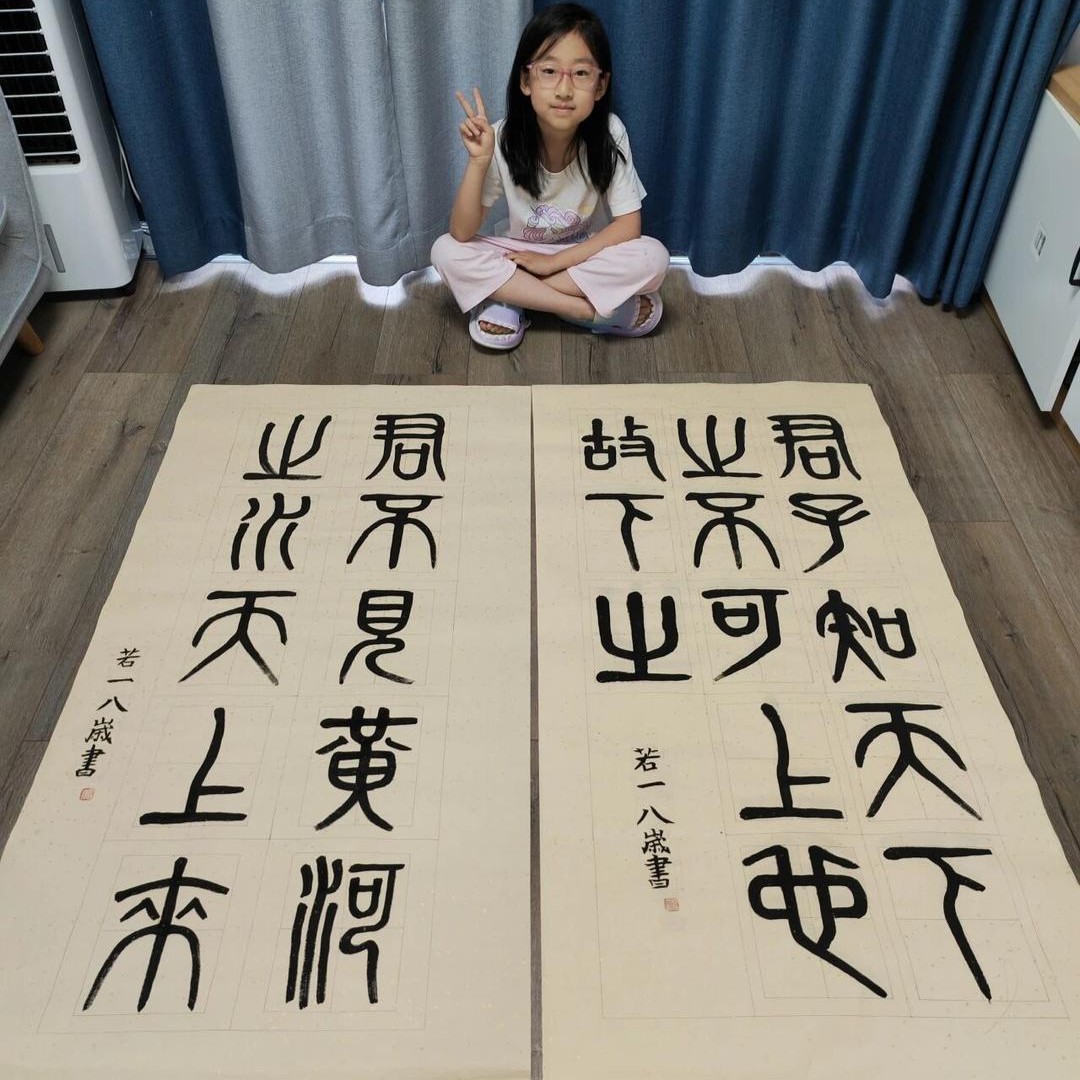 君子知天下
之不可上也
故下之
若一八歲書
君不見黃河
之水天上來
若一八歲書